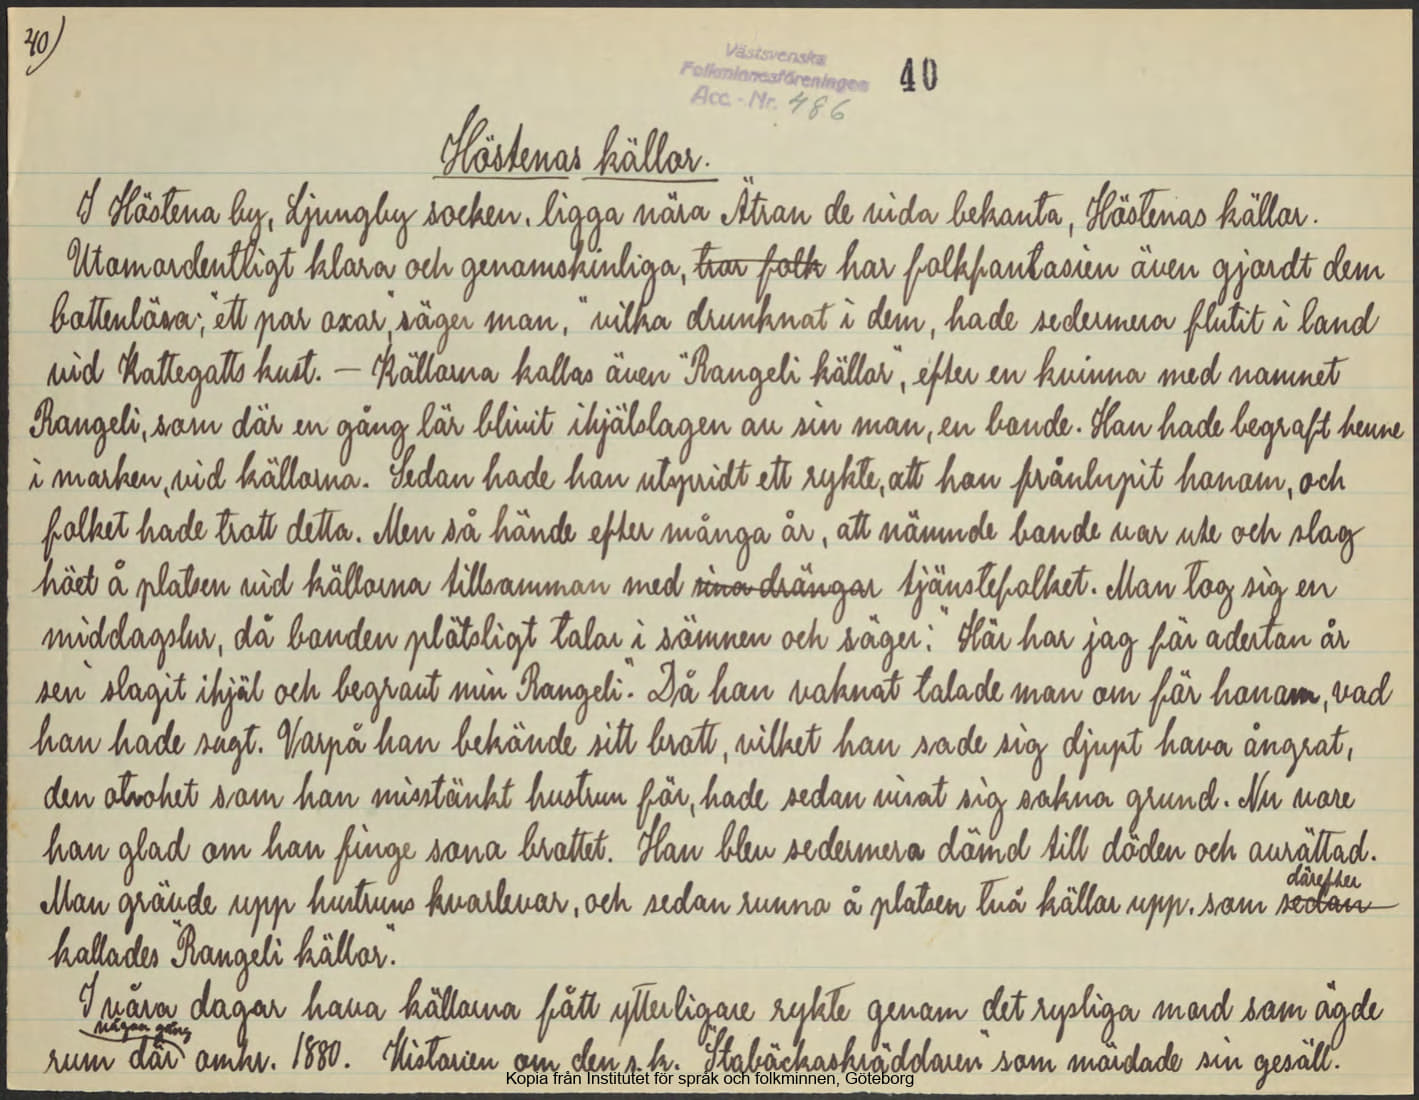 40)
Västsvenska
Folkminnesföreningen
Acc.-Nr. 486
40
Höstenas källor.
I Höstena by, Ljungby socken, ligga nära Ätran de vida bekanta, Höstenas källor.
Utomordentligt klara och genomskinliga, tror folk har folkfantasien även gjordt dem
bottenlösa; "ett par oxar", säger man, "vilka drunknat i dem, hade sedermera flutit i land
vid Kattegatts kust. — Källorna kallas även "Rangeli källor", efter en kvinna med namnet
Rangeli, som där en gång lär blivit ihjälslagen av sin man, en bonde. Han hade begraft henne
i marken, vid källorna. Sedan hade han utspridt ett rykte, att hon frånlupit honom, och
folket hade trott detta. Men så hände efter många år, att nämnde bonde var ute och slog
höet å platsen vid källorna tillsamman med sina drängar tjänstefolket. Man tog sig en
middagslur, då bonden plötsligt talar i sömnen och säger: "Här har jag för aderton år
sen slagit ihjäl och begravt min Rangeli". Då han vaknat talade man om för honom, vad
han hade sagt. Varpå han bekände sitt brott, vilket han sade sig djupt hava ångrat,
den otrohet som han misstänkt hustrun för, hade sedan visat sig sakna grund. Nu vore
han glad om han finge sona brottet. Han blev sedermera dömd till döden och avrättad.
Man grävde upp hustruns kvarlevor, och sedan runno å platsen två källor upp, som sedan därefter
kallades "Rangeli källor".
I våra dagar hava källorna fått ytterligare rykte genom det rysliga mord som ägde
rum där någon gång omkr. 1880. Historien om den s.k. "Stabäckaskräddaren" som mördade sin gesäll.
Kopia från Institutet för språk och folkminnen, Göteborg